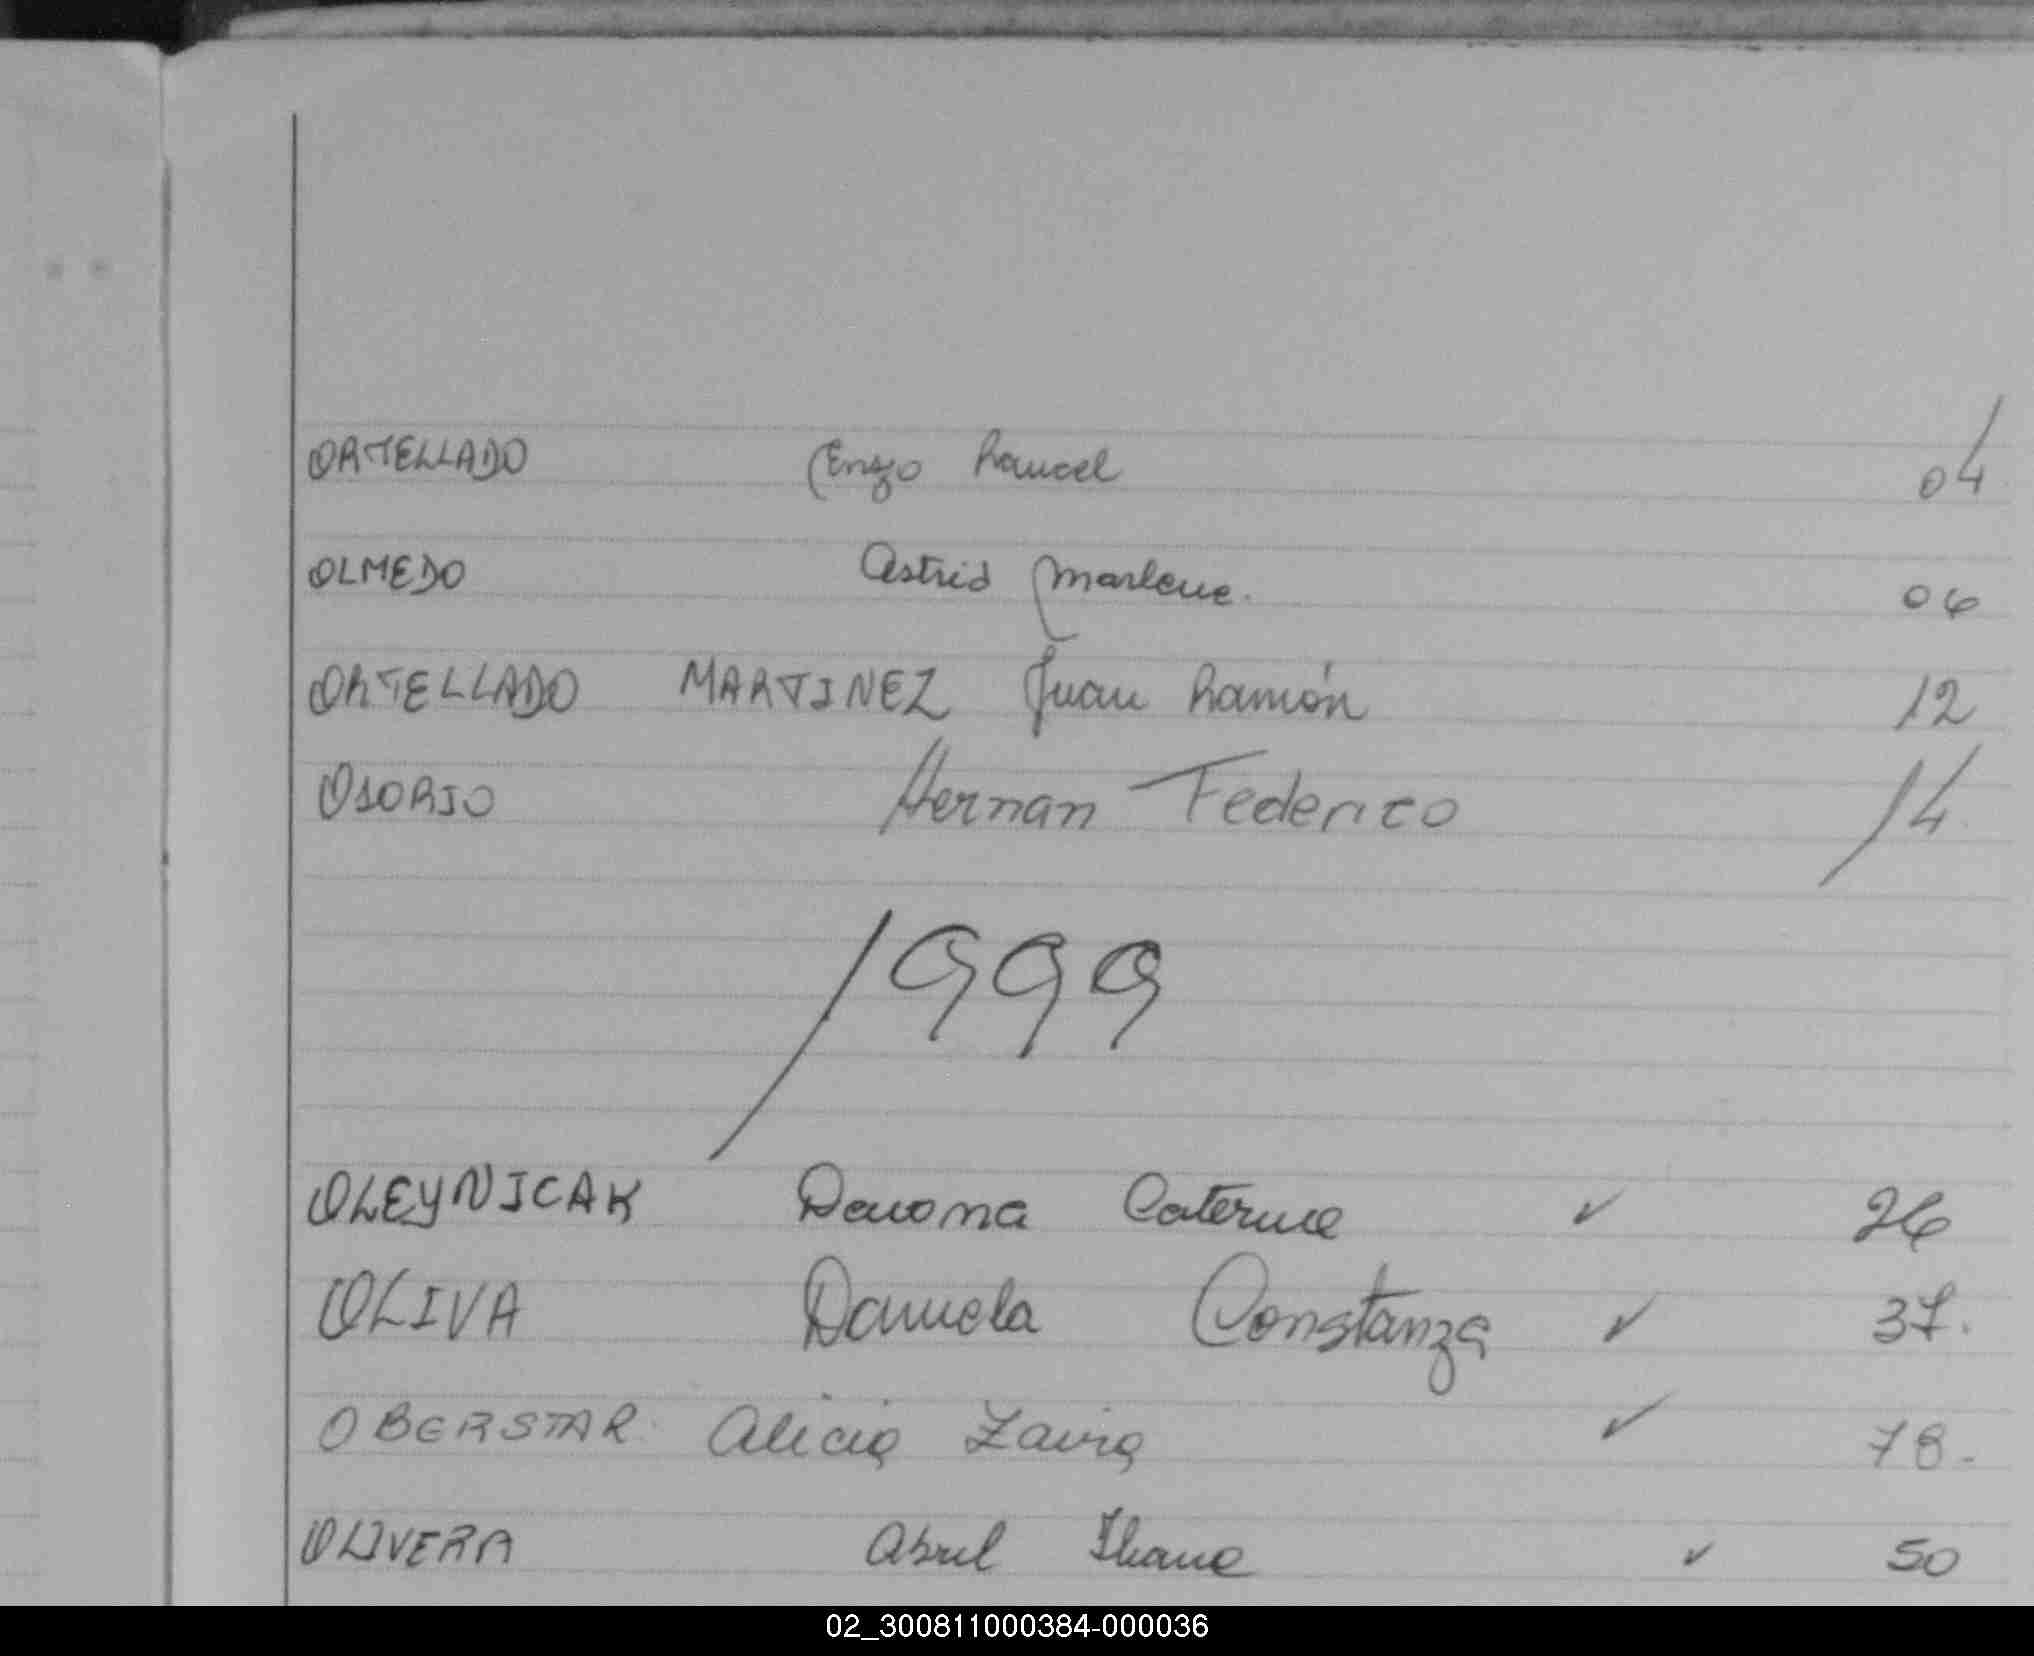 ORTELLADO Enzo Raucel 04
OLMEDO Astrid Marlene. 06
ORTELLADO MARTINEZ Juan Ramón 12
OSORIO Hernan Federico 14
1999
OLEYNICAK Caterine ✓ 26
OLIVA Daniela Constanza ✓ 37.
OBERSTAR Alicia Zaira ✓ 78.
OLIVERA Abril ✓ 50
02_300811000384-000036